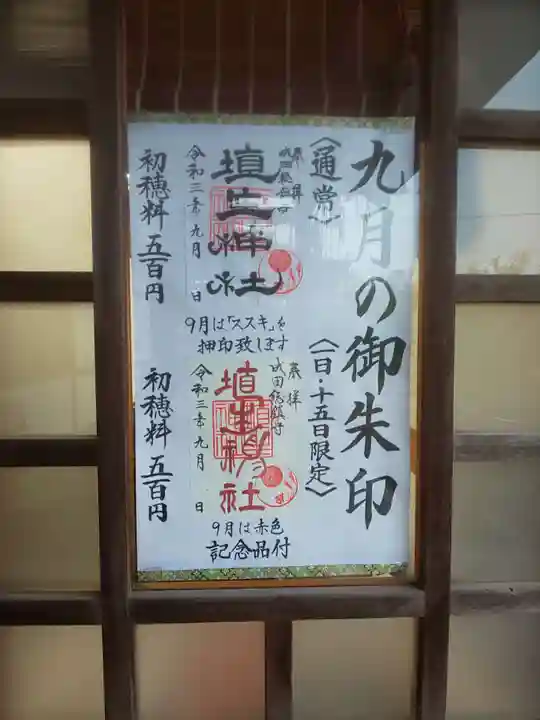 九月の御朱印
〈通常〉
奉拝
成田総鎮守
埴生神社
令和三年九月 日
初穂料五百円
9月は「ススキ」を
押印致します
〈一日・十五日限定〉
奉拝
成田総鎮守
埴生神社
令和三年九月 日
初穂料五百円
9月は赤色
記念品付